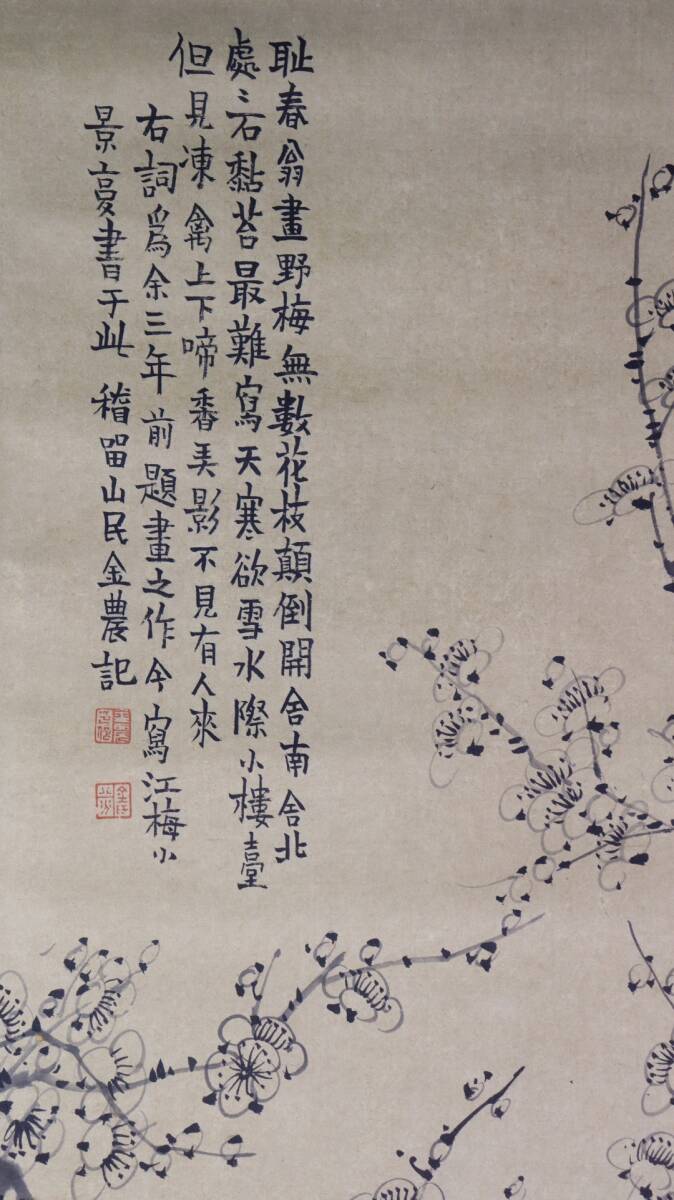 耻春翁畫野梅無數花枝顛倒開舍南舍北
處〻石黏苔最難寫天寒欲雪水際小樓臺
但見凍禽上下啼香弄影不見有人來
右詞爲余三年前題畫之作今寫江梅小
景裛書于此稽留山民金農記